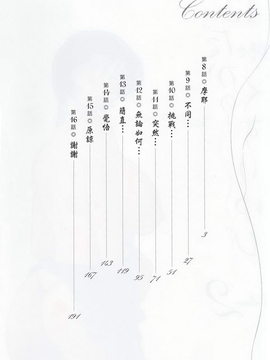 Contents
第8話◎摩耶 3
第9話◎不同… 27
第10話◎挑戰… 51
第11話◎突然… 71
第12話◎無論如何… 95
第13話◎簡直… 119
第14話◎覺悟 143
第15話◎原諒 167
第16話◎謝謝 191